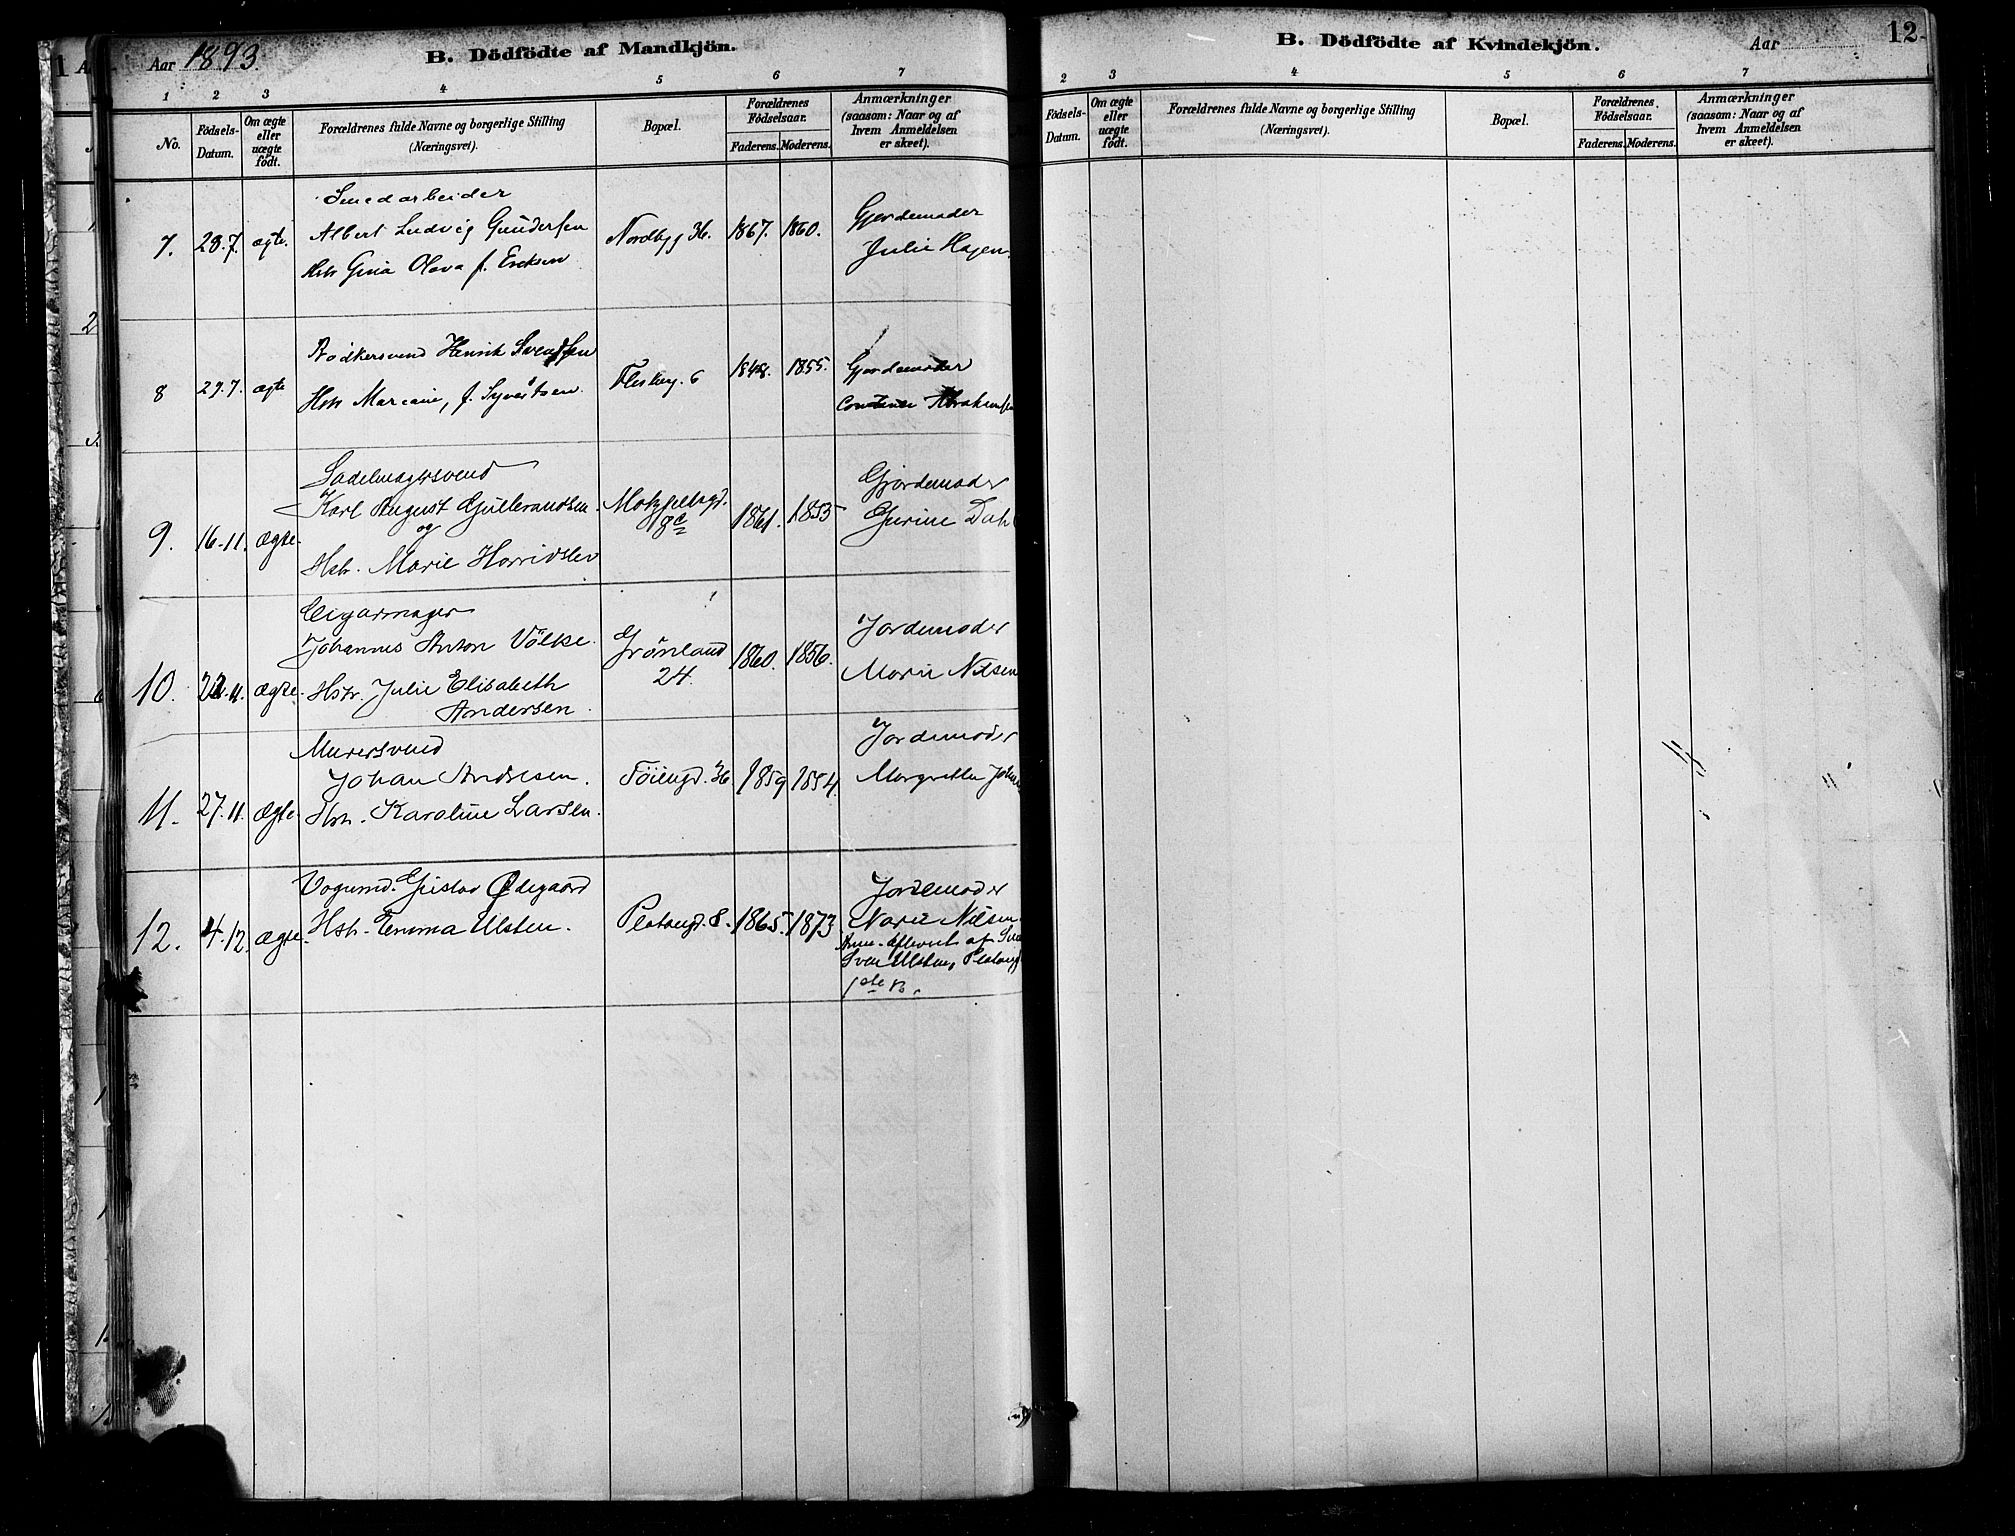 Aar 1893.
B. Dödfödte af Mandkjön.
1 2 3 4 5 6 7
No.
Födsels-Datum.
Om ægte eller uægte födt.
Forældrenes fulde Navne og borgerlige Stilling (Næringsvei).
Bopæl.
Forældrenes Födselsaar.
Faderens. Moderens.
Anmærkninger (saasom: Naar og af hvem Anmeldelsen er skeet).
Smedarbeider
7. 28.7. ægte. Albert Ludvig Gundersen Nordbyg 36. 1867. 1860. Gjordemoder
Hstr Gina Olava f. Eriksen Julie Hagen.
Bødkersvend Henrik Svendsen
8 29.7. ægte Flesberg. 6 1848. 1855. Gjordemoder
Hstr Marcanie, f. Syvertsen. Abrahamsen
Sadelmagersvend Gjordemoder
9. 16-11. ægte. Karl August Gulbrandsen. 1861. 1853 Gurine Dahl
og 8c
Hstr. Marie Horridslev
Cigarmager Jordemoder
10. 22.11. ægte. Johannes Anton Völke. Grønland 24. 1860. 1856. Marie Nilsen
Hstr. Julie Elisabeth
Andersen.
Murersvend Jordemoder
11. 27.11. ægte. Johan Andresen. Töiengd. 36. 1859 1854. Margrethe
Hstr. Karoline Larsen.
Vognmd. Gustav Ødegaard Jordemoder
12. 4-12. ægte. Hstr. Emma Ulsten. Platougd. 8. 1865. 1873 Marie Nilsen
Anm. afleveret af
Sven Ulsten, Platougd
1ste B.
B. Dödfödte af Kvindekjön.
Aar
12
2 3 4 5 6 7
Födsels-Datum.
Om ægte eller uægte födt.
Forældrenes fulde Navne og borgerlige Stilling (Næringsvei).
Bopæl.
Forældrenes Födselsaar.
Faderens. Moderens.
Anmærkninger (saasom: Naar og af hvem Anmeldelsen er skeet).